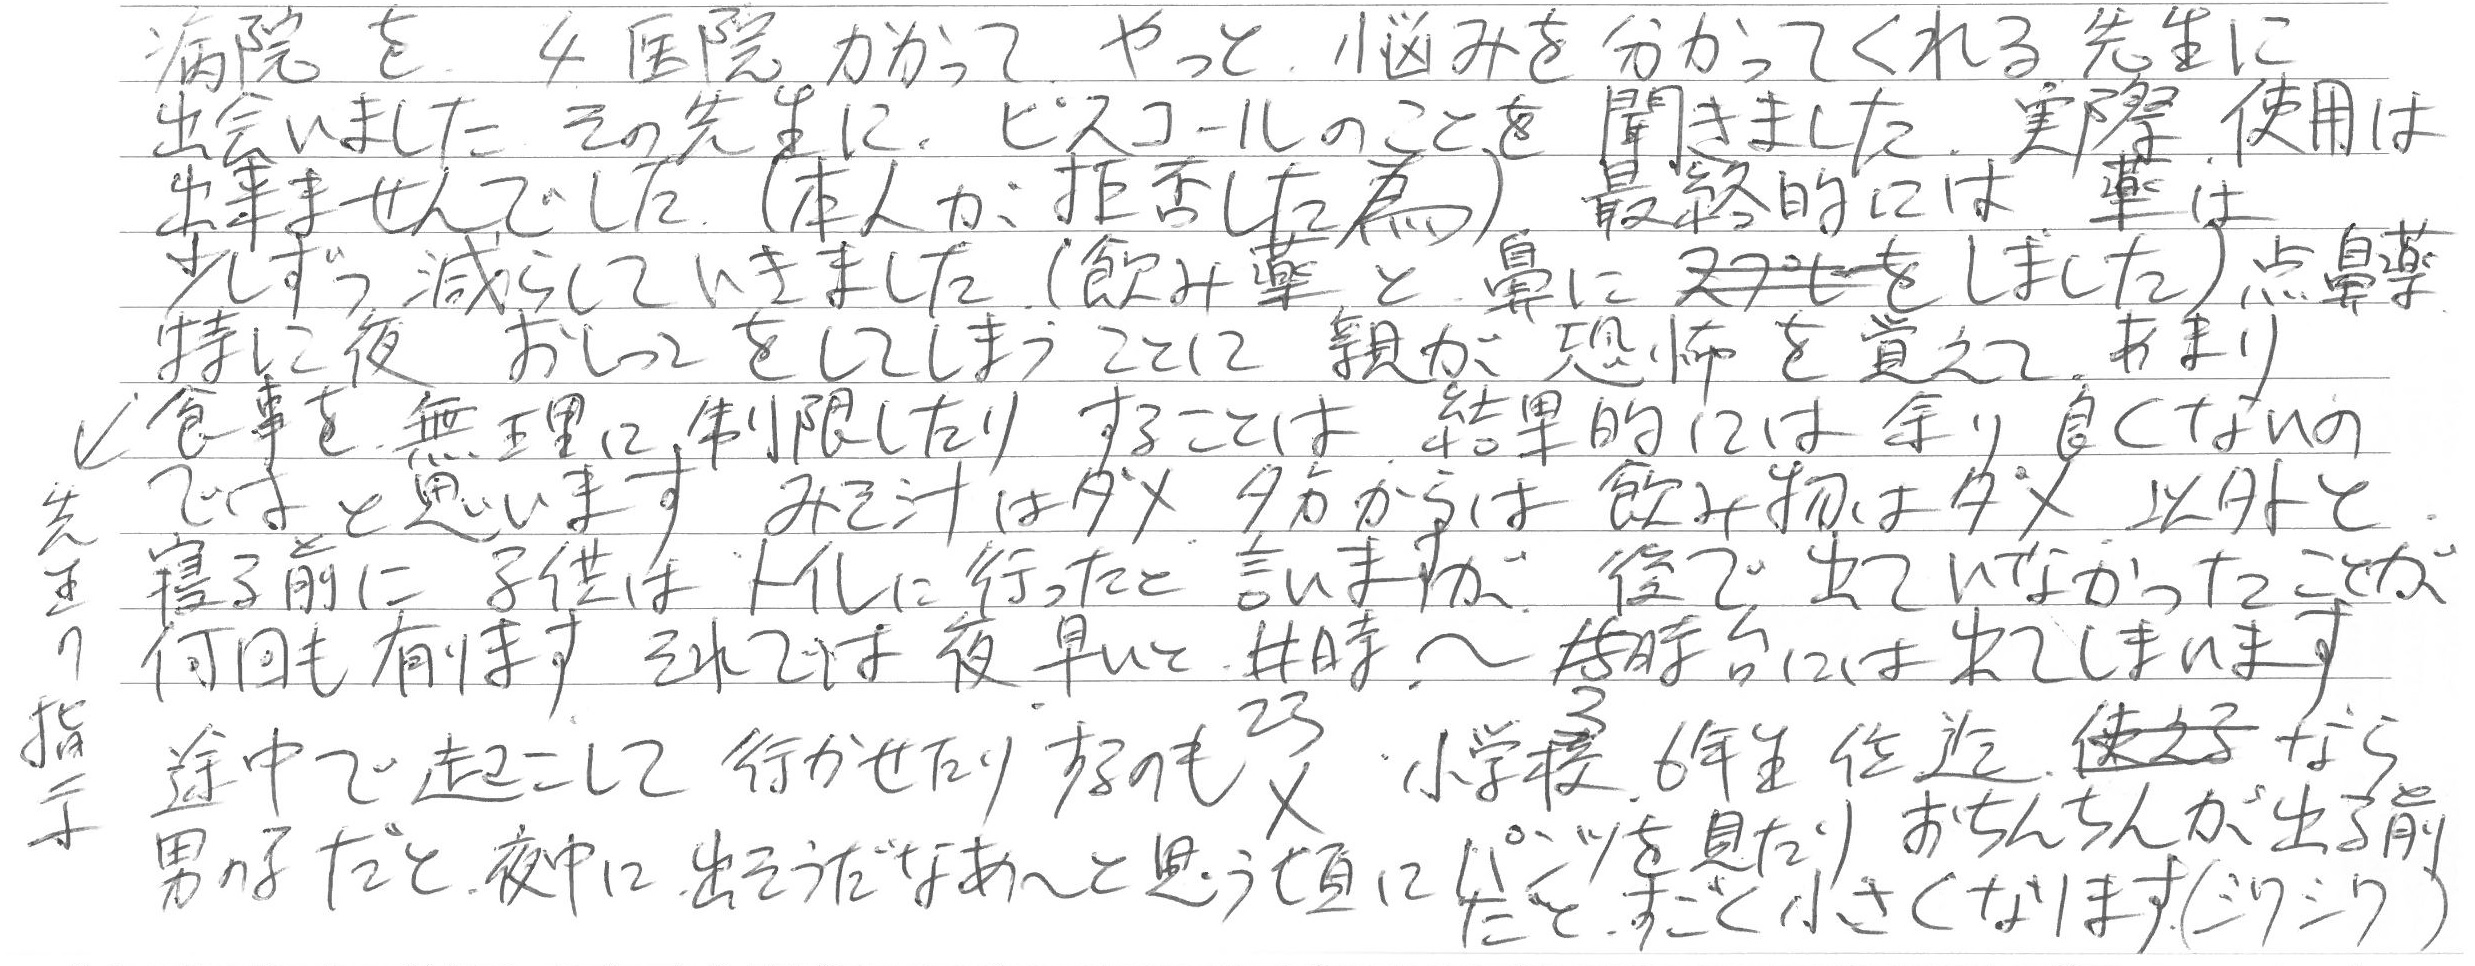 病院を 4医院かかって やっと 悩みを分かってくれる先生に
出会いました その先生に ピスコールのことを 聞きました 実際 使用は
出来ませんでした (本人が拒否した為) 最終的には 薬は
少しずつ 減らして いきました (飲み薬と 鼻に スプレーを しました) 点鼻薬
特に夜 おしっこをしてしまうことに 親が恐怖を覚えて あまり
食事を無理に 制限したりすることは 結果的には余り良くないの
ではと思います みそ汁はダメ 夕方からは 飲み物はダメ 以外と
寝る前に 子供はトイレに行ったと言いますが 後で出ていなかったことが
何回も有ります それでは夜早いと 時〜 時台には出てしまいます
23 3
途中で起こして行かせたりするのも× 小学校 6年生位迄 使えるなら
男の子だと 夜中に出そうだなあ〜と思う頃に パンツを見たり おちんちんが出る前
だと すごく小さくなります(シワシワ)
先生の指示